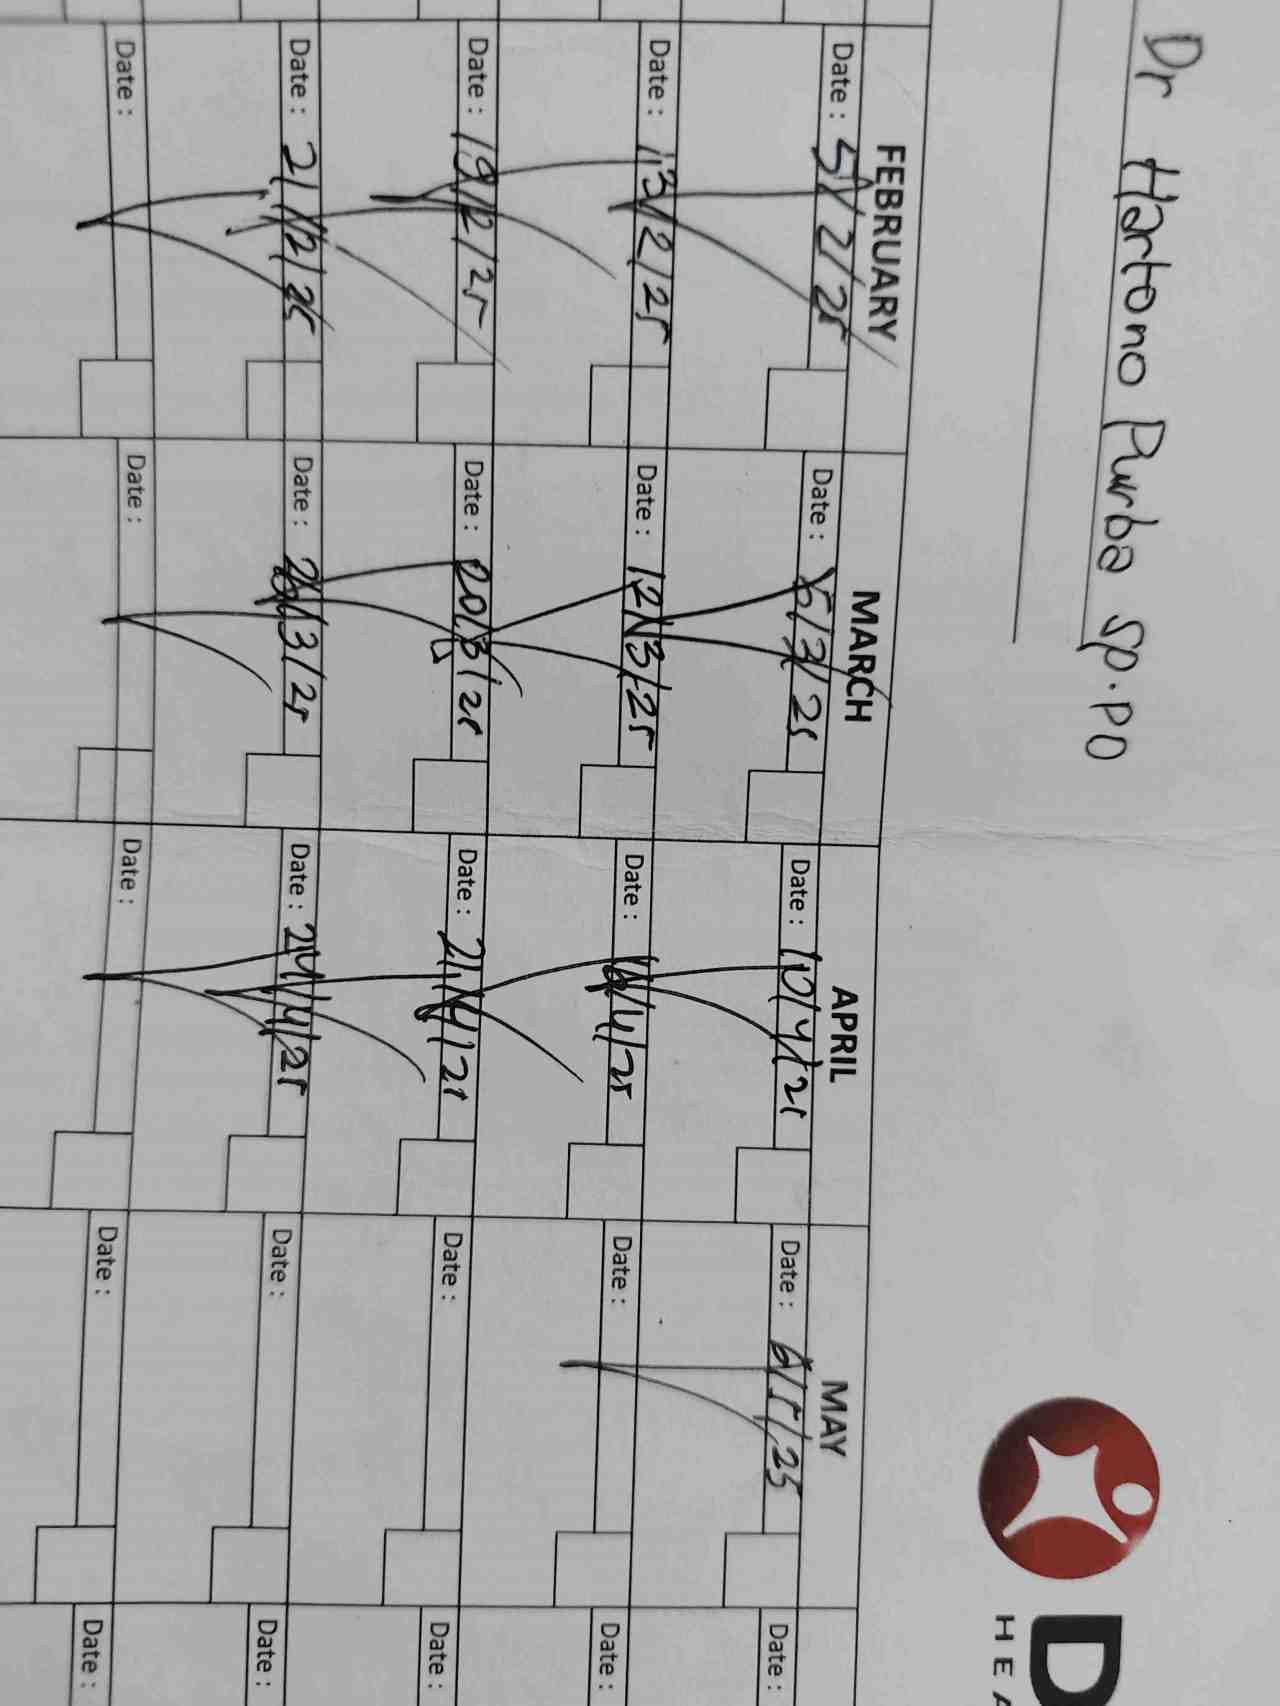 Dr Hartono Purba Sp.PD
D
HEA
FEBRUARY MARCH APRIL MAY
Date : 5/2/25 Date : 5/3/25 Date : 10/4/25 Date : 6/5/25 Date :
Date : 13/2/25 Date : 12/3/25 Date : 16/4/25 Date : Date :
Date : 19/2/25 Date : 20/3/25 Date : 21/4/25 Date : Date :
Date : 21/2/25 Date : 26/3/25 Date : 24/4/25 Date : Date :
Date : Date : Date : Date : Date :